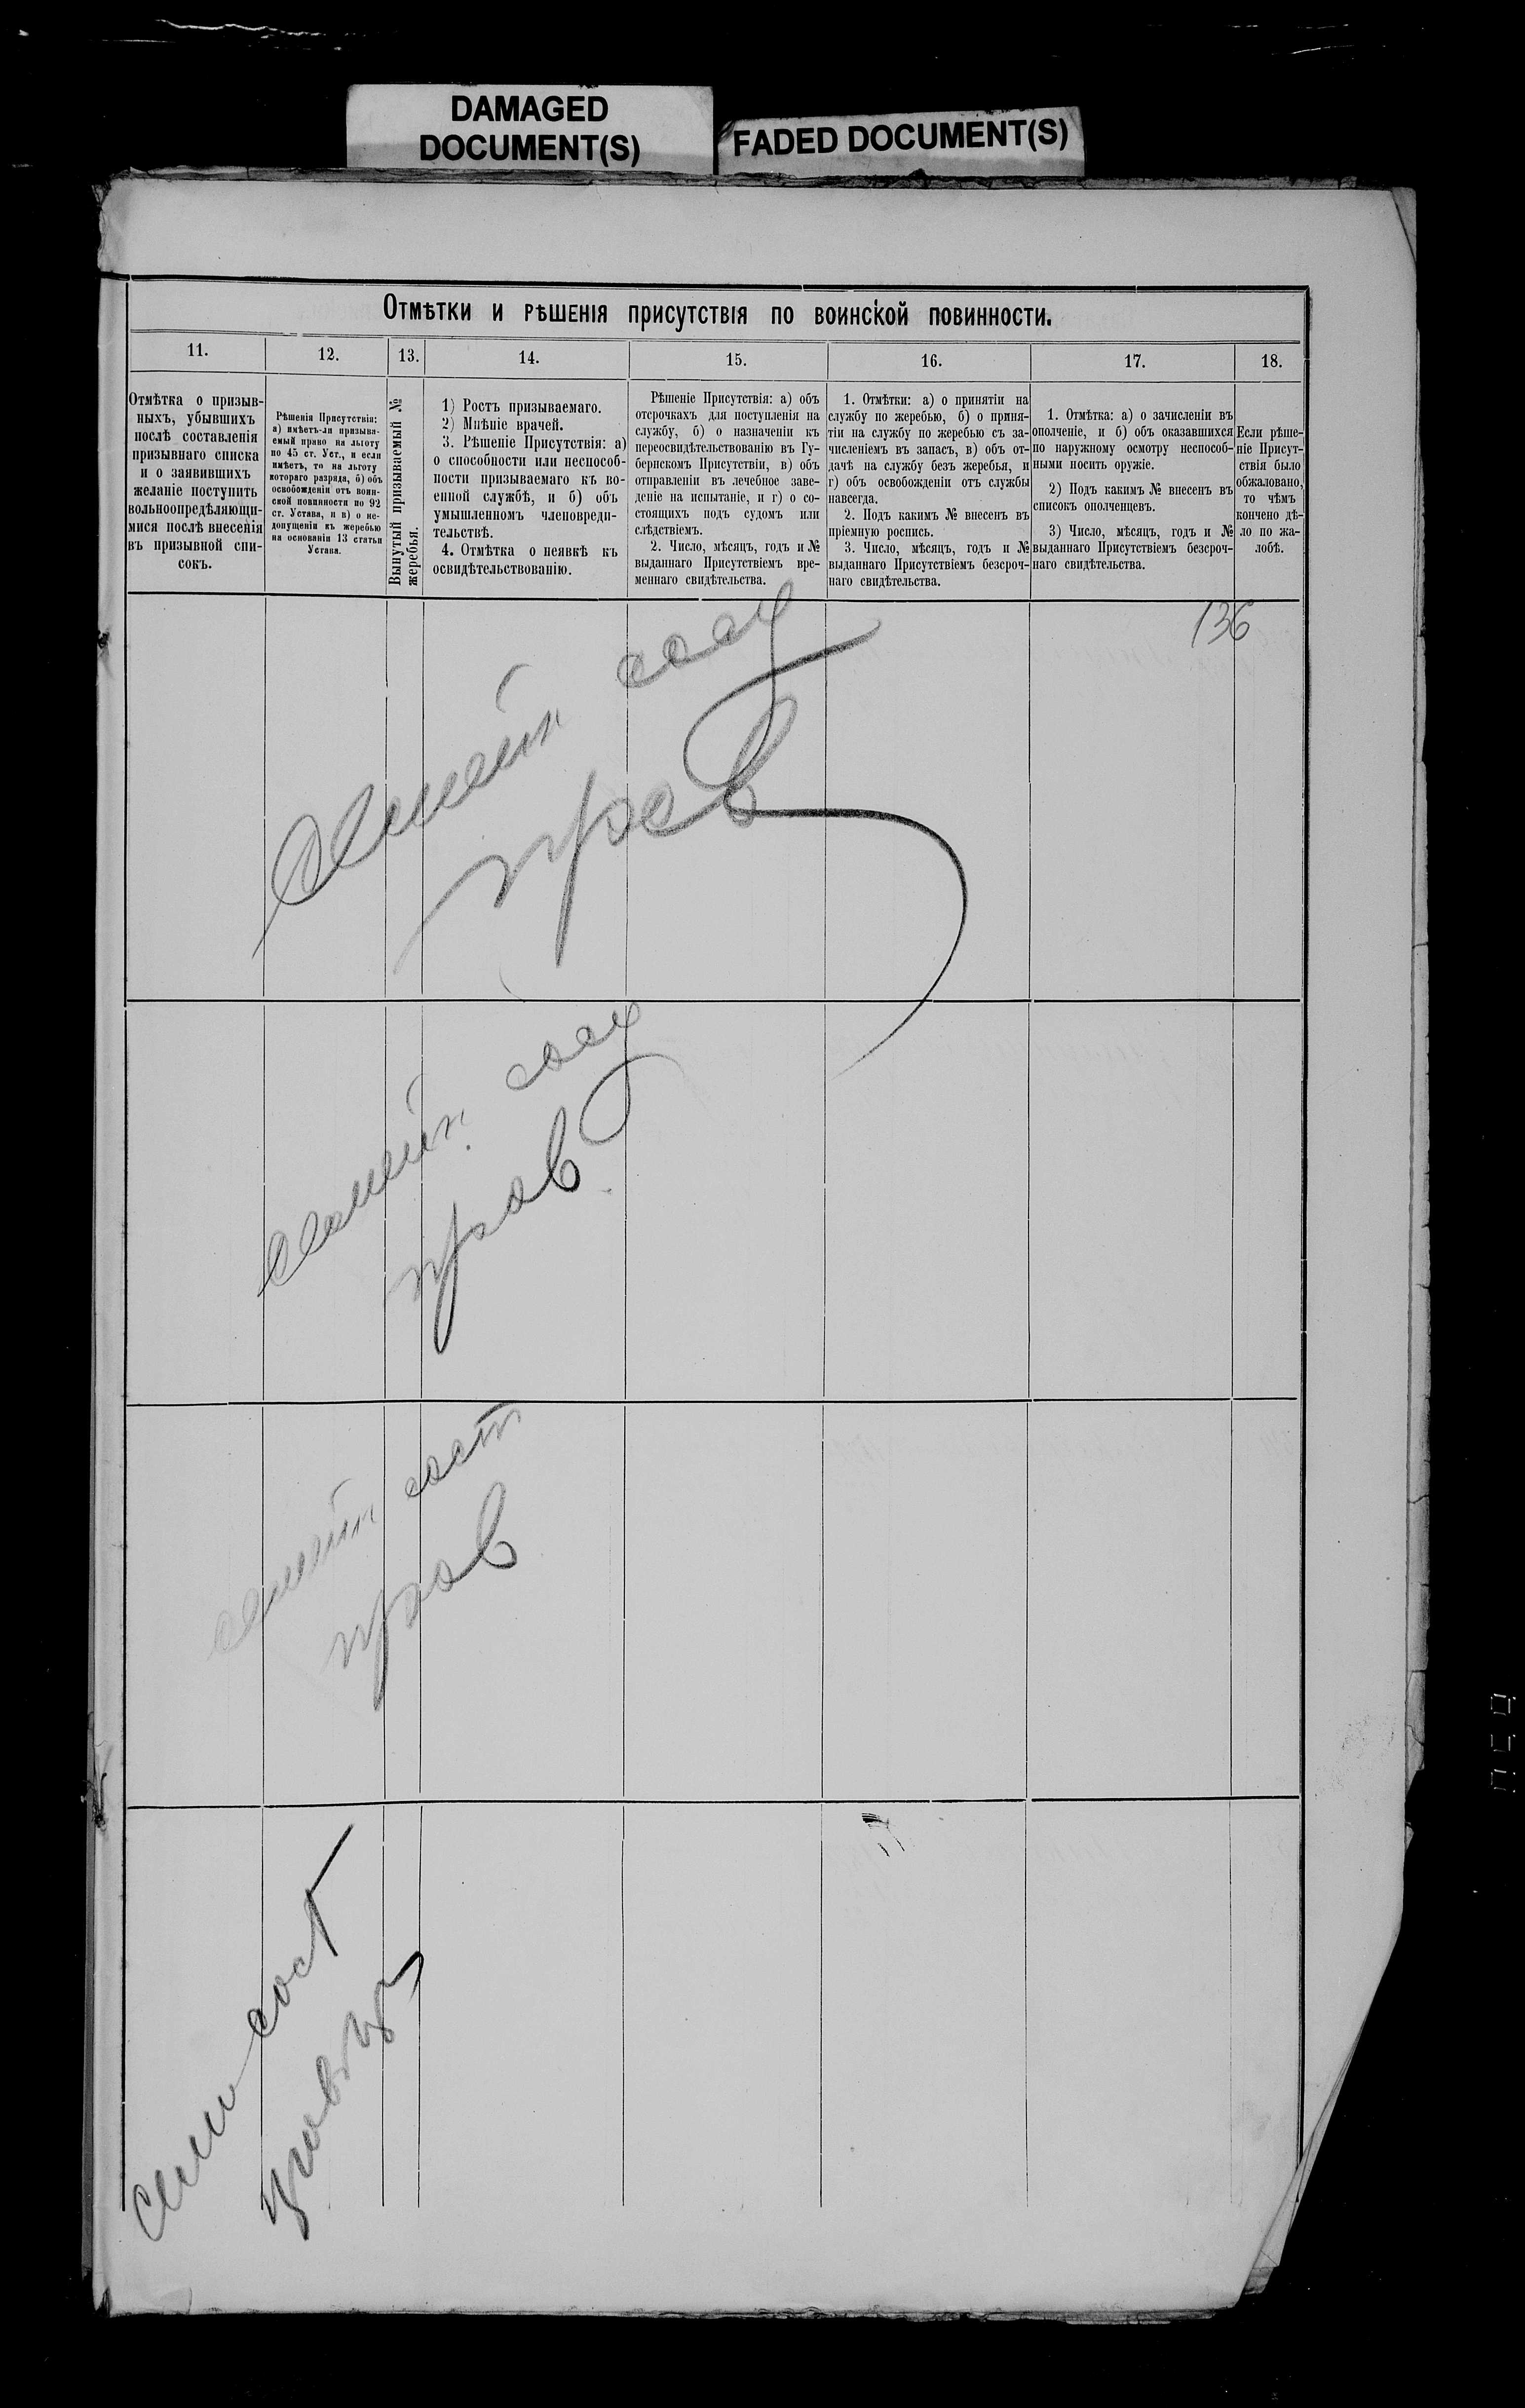 DAMAGED
DOCUMENT(S)
FADED DOCUMENT(S)
Отмѣтки и рѣшенія присутствія по воинской повинности.
11.
12.
13.
14.
15.
16.
17.
18.
Отмѣтка о призыв-
ныхъ, убывшихъ
послѣ составленія
призывнаго списка
и о заявившихъ
желаніе поступить
вольноопредѣляющи-
мися послѣ внесенія
въ призывной спи-
сокъ.
Рѣшенія Присутствія:
а) имѣетъ-ли призыва-
емый право на льготу
по 45 ст. Уст., и если
имѣетъ, то на льготу
котораго разряда, б) объ
освобожденіи отъ воин-
ской повинности по 92
ст. Устава, и в) о не-
допущеніи къ жеребью
на основаніи 13 статьи
Устава.
Вынутый призываемый №
жеребья.
1) Ростъ призываемаго.
2) Мнѣніе врачей.
3. Рѣшеніе Присутствія: а)
о способности или неспособ-
ности призываемаго къ во-
енной службѣ, и б) объ
умышленномъ членовреди-
тельствѣ.
4. Отмѣтка о неявкѣ къ
освидѣтельствованію.
Рѣшеніе Присутствія: а) объ
отсрочкахъ для поступленія на
службу, б) о назначеніи къ
переосвидѣтельствованію въ Гу-
бернскомъ Присутствіи, в) объ
отправленіи въ лечебное заве-
деніе на испытаніе, и г) о со-
стоящихъ подъ судомъ или
слѣдствіемъ.
2. Число, мѣсяцъ, годъ и №
выданнаго Присутствіемъ вре-
меннаго свидѣтельства.
1. Отмѣтки: а) о принятіи на
службу по жеребью, б) о приня-
тіи на службу по жеребью съ за-
численіемъ въ запасъ, в) объ от-
дачѣ на службу безъ жеребья, и
г) объ освобожденіи отъ службы
навсегда.
2. Подъ какимъ № внесенъ въ
пріемную роспись.
3. Число, мѣсяцъ, годъ и №
выданнаго Присутствіемъ безсроч-
наго свидѣтельства.
1. Отмѣтка: а) о зачисленіи въ
ополченіе, и б) объ оказавшихся
по наружному осмотру неспособ-
ными носить оружіе.
2) Подъ какимъ № внесенъ въ
списокъ ополченцевъ.
3) Число, мѣсяцъ, годъ и №
выданнаго Присутствіемъ безсроч-
наго свидѣтельства.
Если рѣше-
ніе Присут-
ствія было
обжаловано,
то чѣмъ
кончено дѣ-
ло по жа-
лобѣ.
136
семейн сост
прав
семейн сост
прав
семейн сост
прав
сем сост